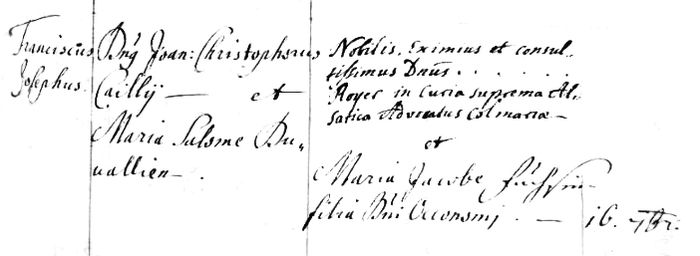 Franciscus Josephus.
Dnq Joan: Christophorus
Cailly — et
Maria Salome Du„
uallien — .
Nobilis, Eximius et consul„
tissimus Dnus . . . . . .
Royer in Curia suprema Al„
satica Advocatus Colmariæ —
et
Maria Jacobe Füchsin
filia Dni Oeconomj . — 16. 7br.